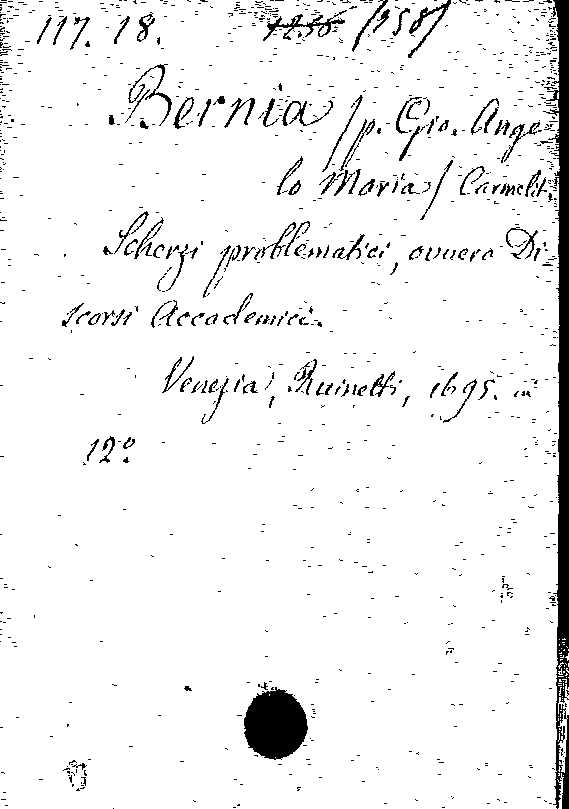 117. 18. (358)
Bernia /p. Gio. Ange-
lo Maria/ Carmelit.
Scherzi problematici, ovuero Di-
scorsi Accademici.
Venezia, Ruinetti, 1695. in
12º